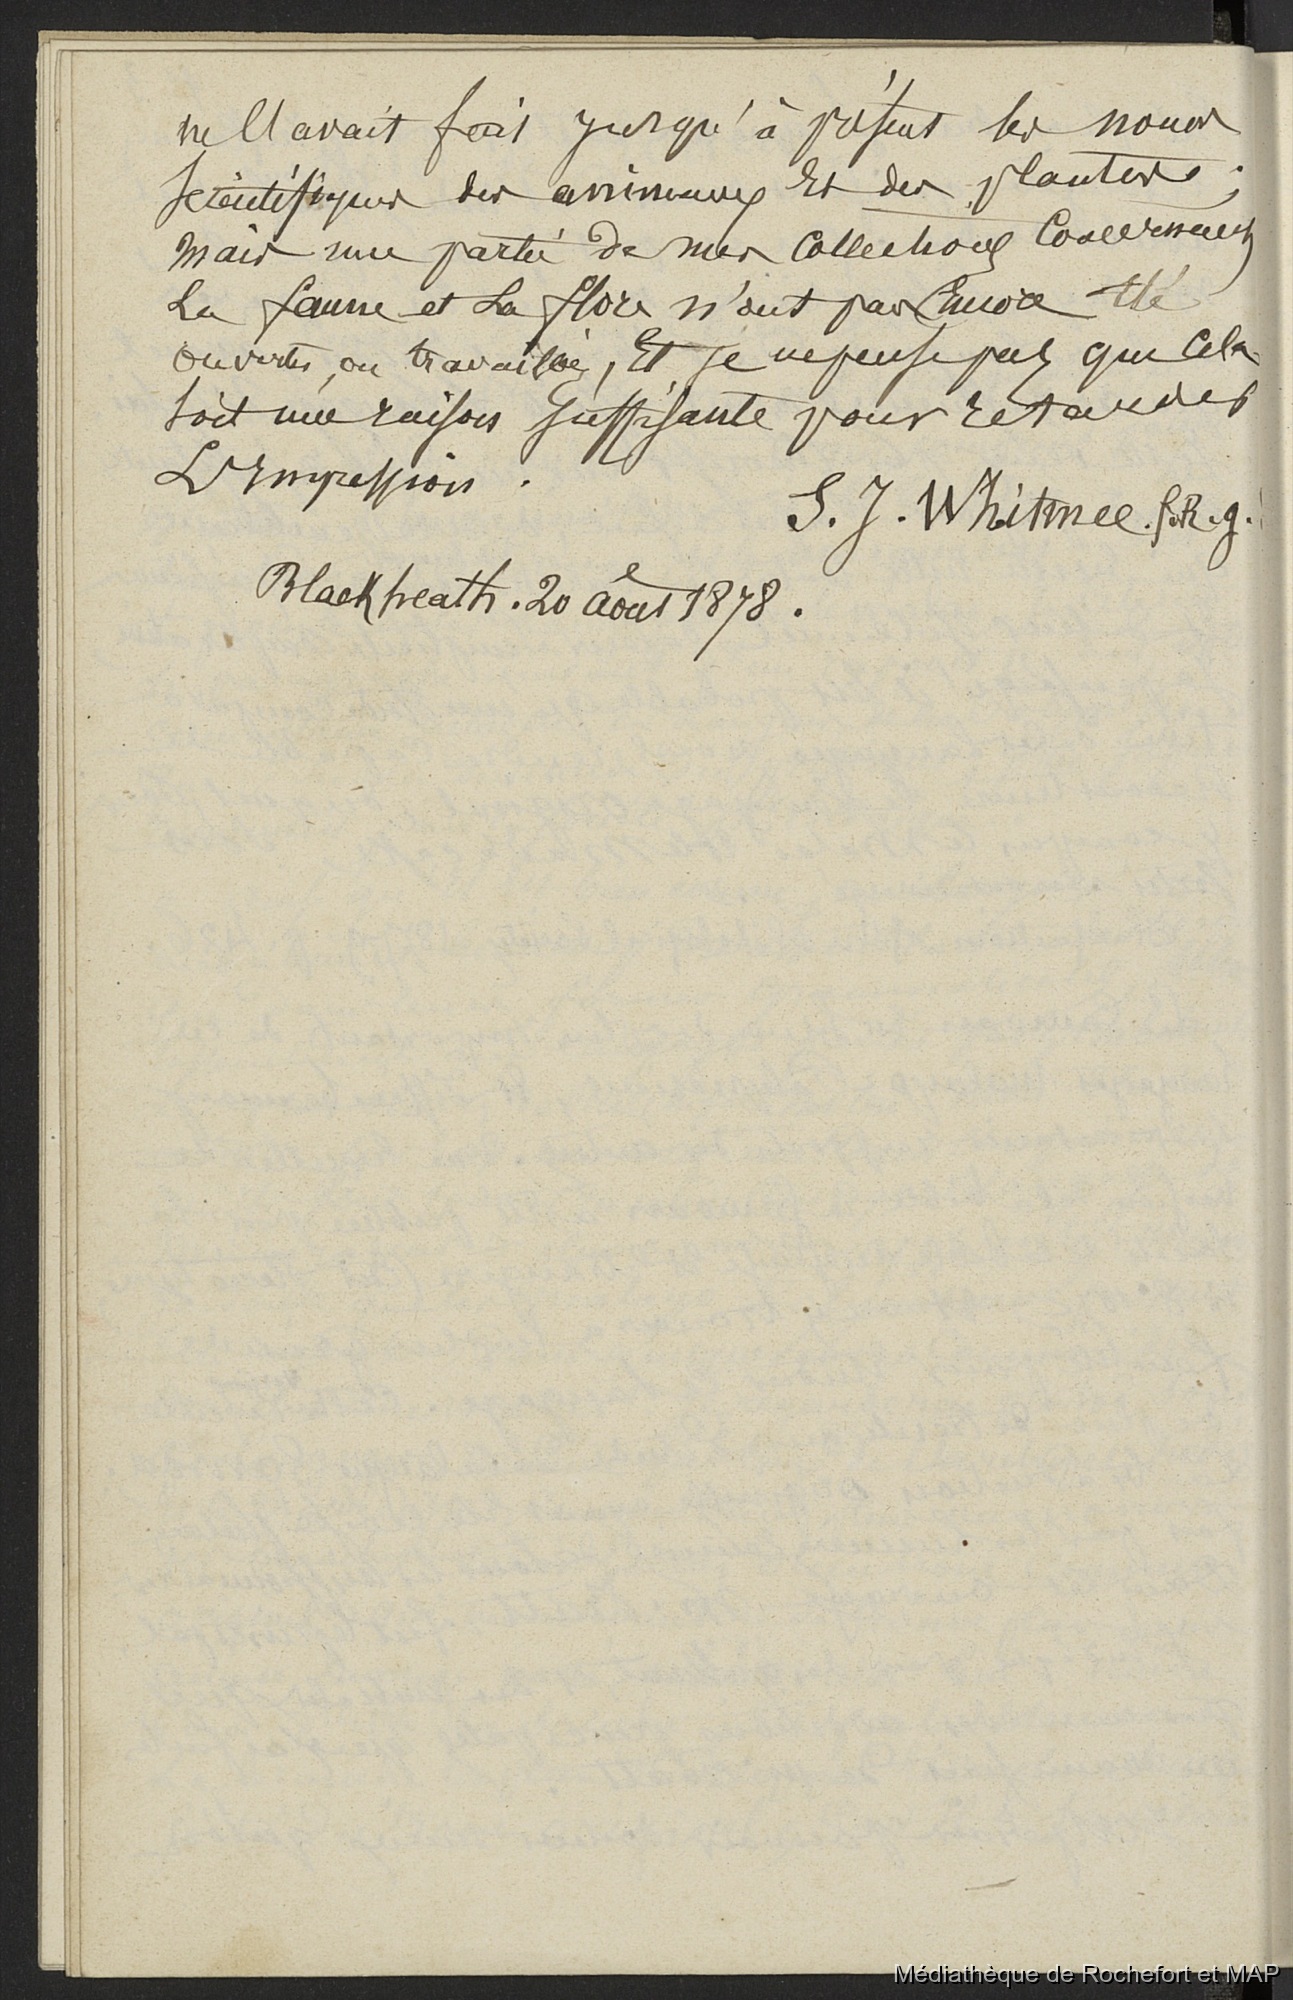 ne l'avait fait jusqu'à présent les noms
scientifiques des animaux et des plantes ;
mais une partie de mes collections concernant
la faune et la flore n'ont pas encore été
ouvertes, ou travaillées, Et je ne pense pas que cela
soit une raison suffisante pour retarder
L'Impression .
S. J. Whitmee. f.R.g.
Blackheath. 20 août 1878 .
Médiathèque de Rochefort et MAP